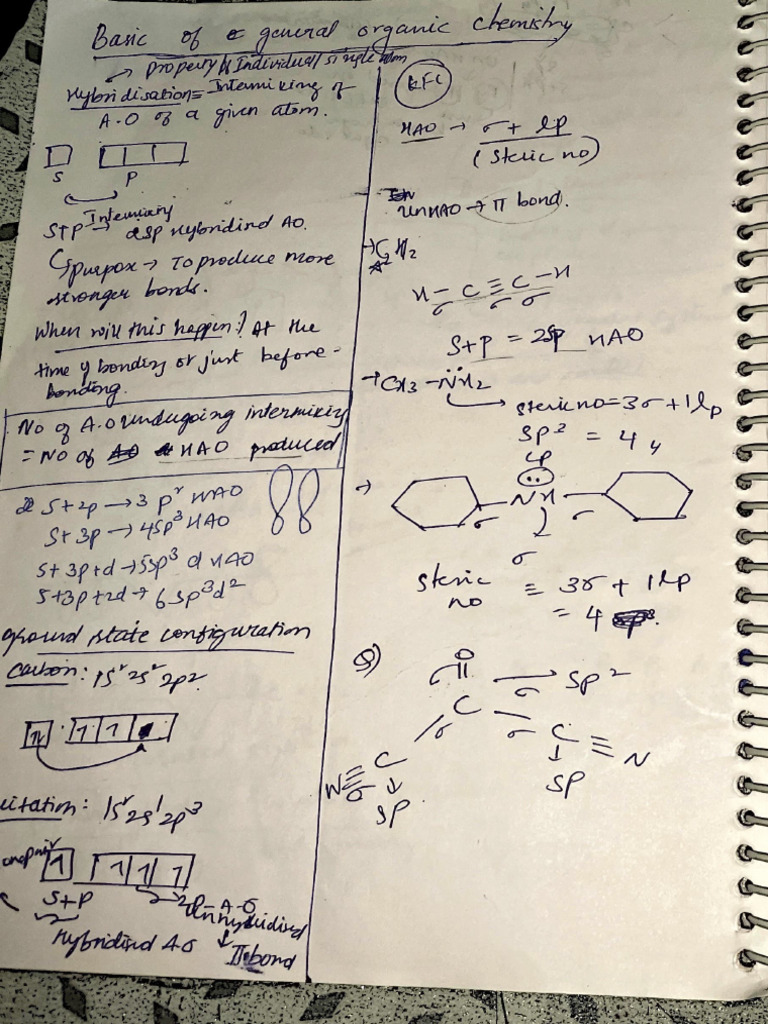 Basic of general organic chemistry
→ property of Individual/single atom
Hybridisation = Intermixing of
A.O of a given atom.
S P
Intermixing
S+P → 2sp Hybridised AO.
↳ purpose → To produce more
stronger bonds.
When will this happen? At the
time of bonding or just before-
bonding.
No of A.O undergoing intermixing
= No of HAO produced
S+2p → 3 p² HAO
S+3p → 4sp³ HAO
S+3p+d → 5sp³ d HAO
S+3p+2d → 6sp³d²
ground state configuration
Carbon: 1s² 2s² 2p².
1L 1 1
citation: 1s² 2s¹ 2p³
1 1 1 1
S+P
2p - A-O
Unhybridised
↓
Hybridised AO
π bond
KFC
HAO → σ + lp
(Steric no)
UnHAO → π bond.
→ C2H2
H - C ≡ C - H
σ σ σ
S+P = 2SP HAO
→ CH3 - N̈H2
Steric no = 3σ + 1lp
SP³ = 4
lp
→ NH
σ σ
σ
Steric no = 3σ + 1lp
= 4
Q)
O
σ || → SP²
C σ
σ C ≡ N
N ≡ C ↓
σ ↓ SP
SP